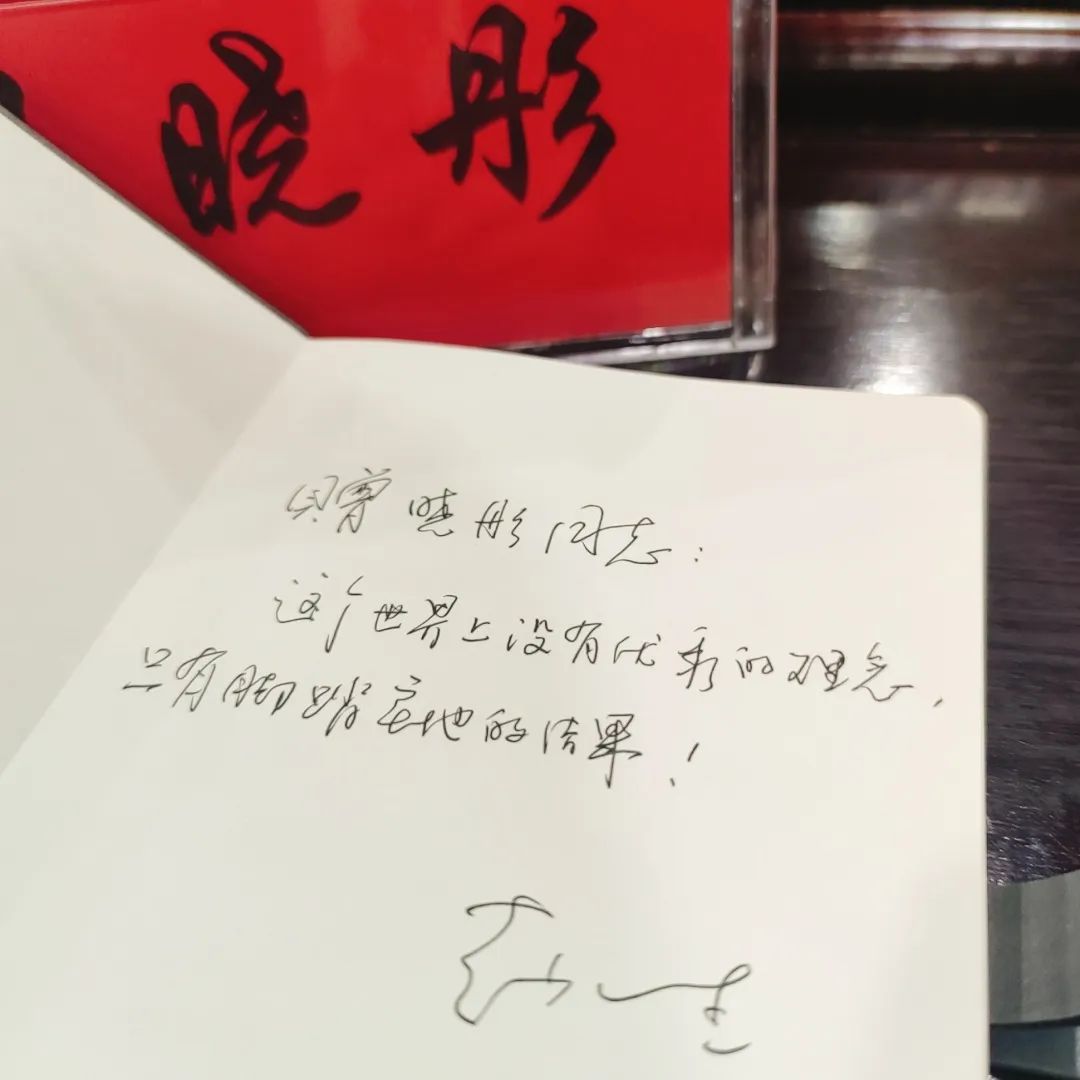 晓彤
赠晓彤同志：
这个世界上没有优秀的理念，
只有脚踏实地的结果！